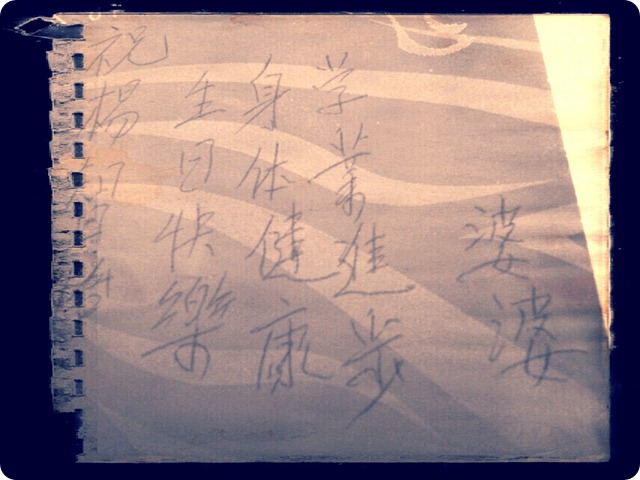 祝楊智
生日快樂
身体健康
学業進步
婆婆